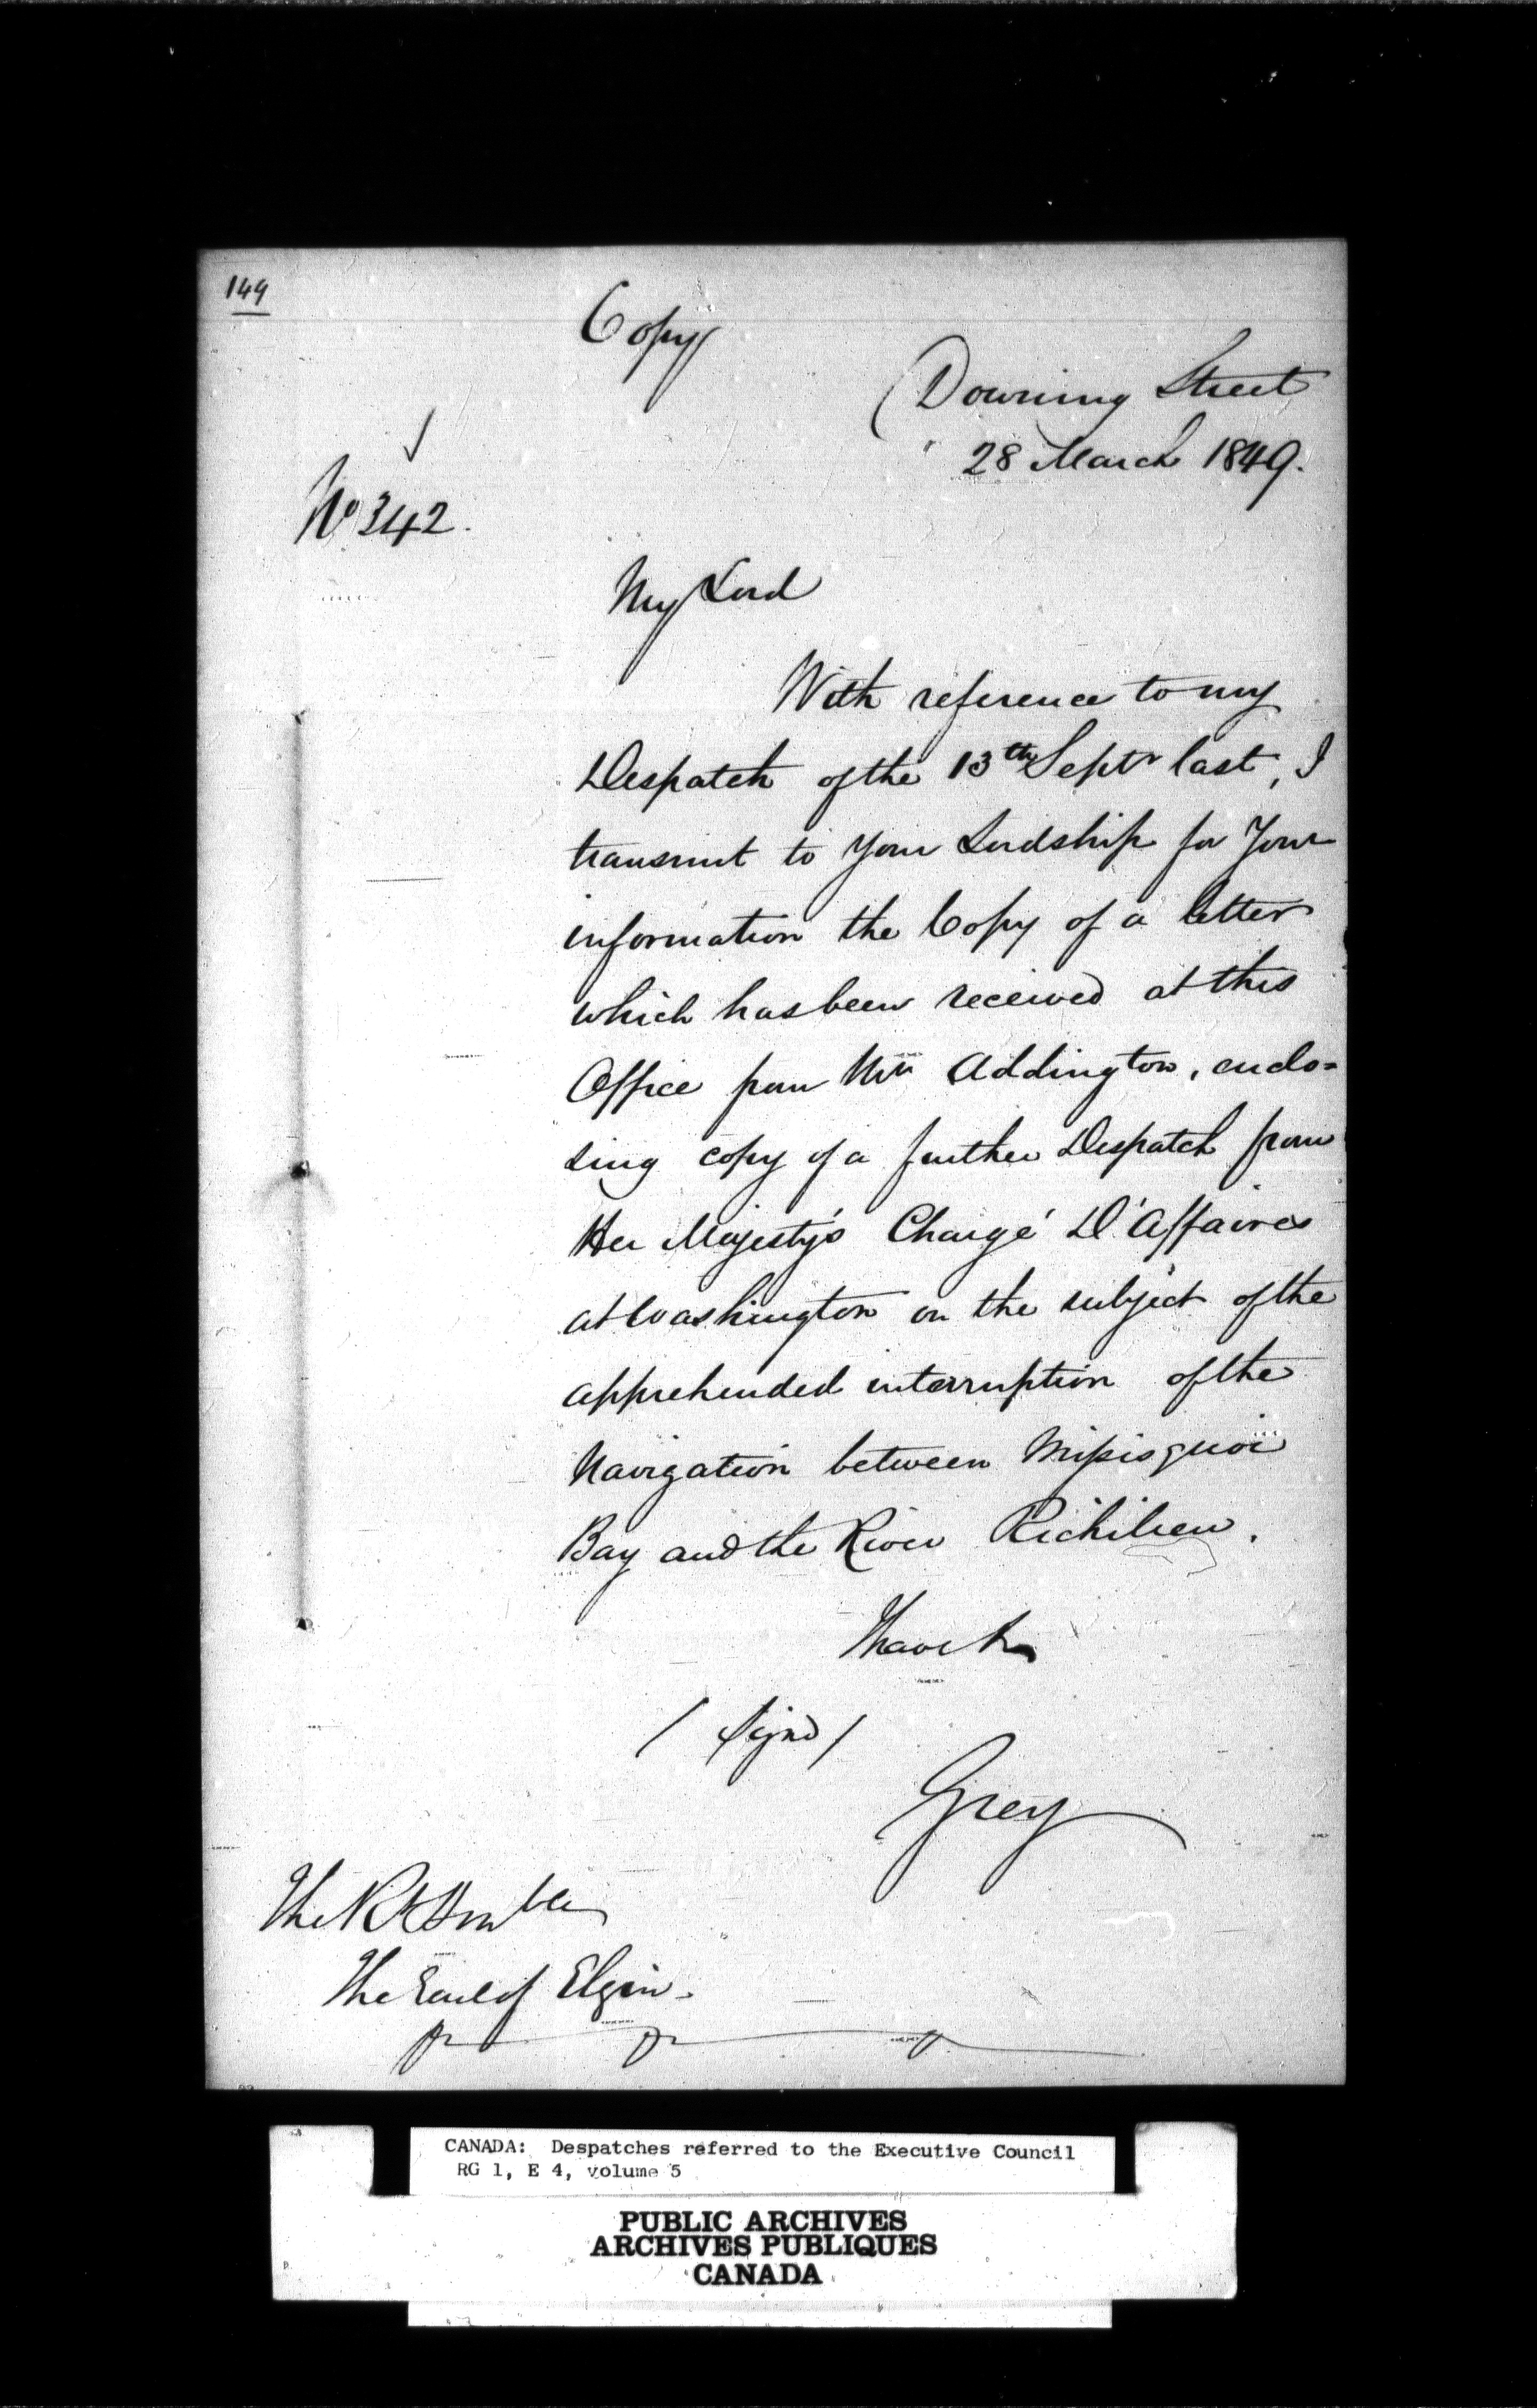 149
Copy
Downing Street
28 March 1849.
No 342.
My Lord
With reference to my
Despatch of the 13th Septr last, I
transmit to Your Lordship for Your
information the Copy of a letter
which has been received at this
Office from Mr Addington, enclo=
sing copy of a further Despatch from
Her Majesty's Chargé D'Affaires
at Washington on the subject of the
apprehended interruption of the
Navigation between Missisquoi
Bay and the River Richilieu.
I have &c
/ Signd /
Grey
The Rt Honble
The Earl of Elgin.
CANADA: Despatches referred to the Executive Council
RG 1, E 4, volume 5
PUBLIC ARCHIVES
ARCHIVES PUBLIQUES
CANADA